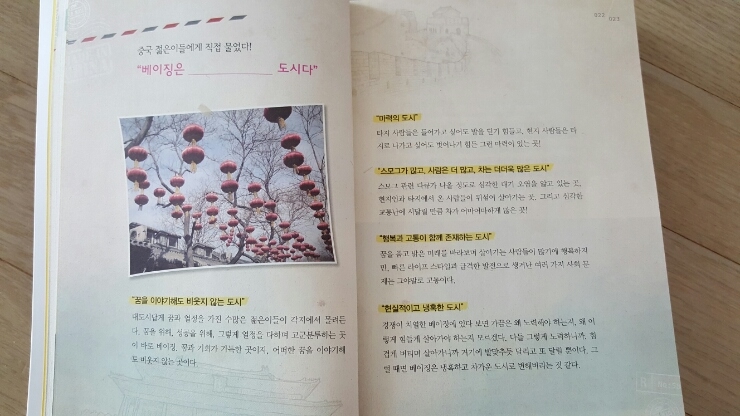 중국 젊은이들에게 직접 물었다!
"베이징은 __________ 도시다"
"꿈을 이야기해도 비웃지 않는 도시"
대도시답게 꿈과 열정을 가진 수많은 젊은이들이 각지에서 몰려든
다. 꿈을 위해, 성공을 위해, 그렇게 열정을 다하며 고군분투하는 곳
이 바로 베이징. 꿈과 기회가 가득한 곳이지, 어떠한 꿈을 이야기해
도 비웃지 않는 곳이다.
022 023
"마력의 도시"
타지 사람들은 들어가고 싶어도 발을 딛기 힘들고, 현지 사람들은 타
지로 나가고 싶어도 벗어나기 힘든 그런 마력이 있는 곳!
"스모그가 많고, 사람은 더 많고, 차는 더더욱 많은 도시"
스모그 관련 다큐가 나올 정도로 심각한 대기 오염을 앓고 있는 곳,
현지인과 타지에서 온 사람들이 뒤섞여 살아가는 곳, 그리고 심각한
교통난에 시달릴 만큼 차가 어마어마하게 많은 곳!
"행복과 고통이 함께 존재하는 도시"
꿈을 품고 밝은 미래를 바라보며 살아가는 사람들이 많기에 행복하지
만, 빠른 라이프 스타일과 급격한 발전으로 생겨난 여러 가지 사회 문
제는 그야말로 고통이다.
"현실적이고 냉혹한 도시"
경쟁이 치열한 베이징에 있다 보면 가끔은 왜 노력해야 하는지, 왜 이
렇게 힘들게 살아가야 하는지 모르겠다. 다들 그렇게 노력하니까, 힘
겹게 버티며 살아가니까 거기에 발맞추듯 달리고 또 달릴 뿐이다. 그
럴 때면 베이징은 냉혹하고 차가운 도시로 변해버리는 것 같다.